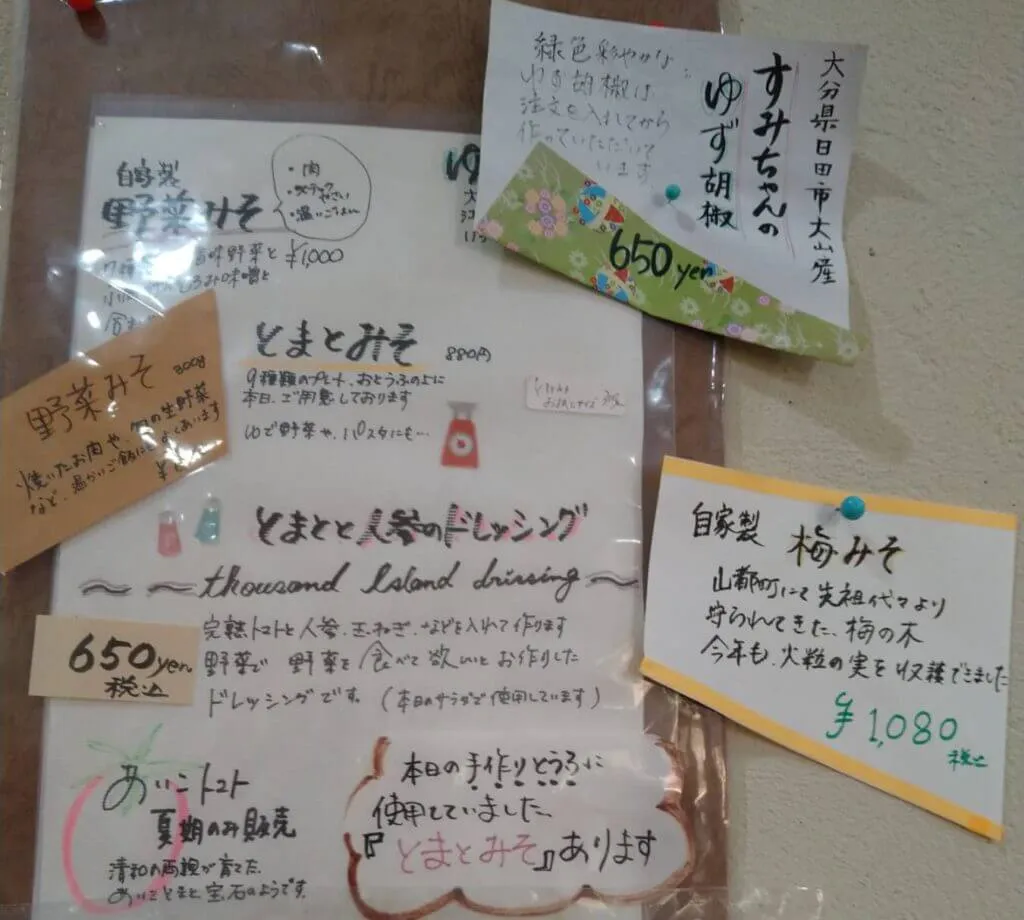 大分県日田市大山産
すみちゃんの
ゆず胡椒
緑色彩やかな
ゆず胡椒は
注文を入れてから
作っていただいて
います
650yen
自家製
野菜みそ
・肉
・スティックやさい
・温いごはん
¥1,000
7種
味野菜と
味噌と
ゆ
とまとみそ 880円
9種類のプレート、おとうふの上に
本日、ご用意しております
ゆで野菜や、パスタにも…
野菜みそ 300g
焼いたお肉や、旬の生野菜
など、温かいご飯によくあいます
とまとと人参のドレッシング
thousand Island drissing
650yen
税込
完熟トマトと人参、玉ねぎ、などを入れて作ります
野菜で 野菜を食べて欲しいとお作りした
ドレッシングです。(本日のサラダで使用しています)
自家製 梅みそ
山都町にて先祖代々より
守られてきた、梅の木
今年も、大粒の実を収穫できました
¥1,080
税込
あいこトマト
夏期のみ販売
清和の両親が育てた、
あいことまと宝石のようです。
本日の手作りとうふに
使用していました、
『とまとみそ』あります